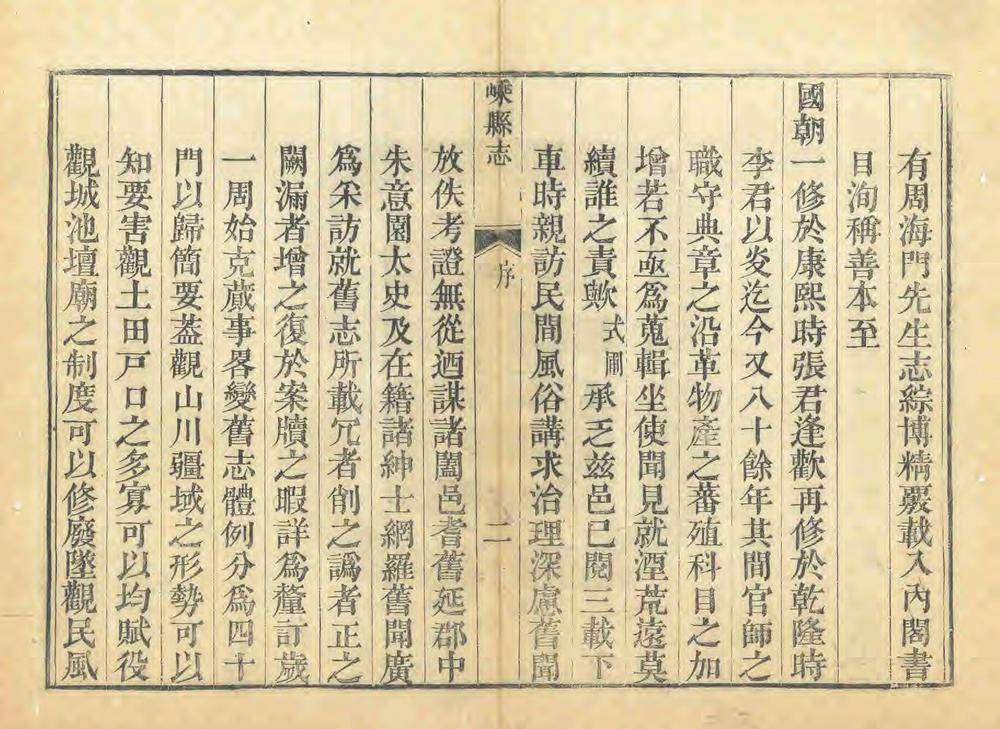 有周海門先生志綜博精嚴載入內閣書
目洵稱善本至
國朝一修於康熙時張君逢歡再修於乾隆時
李君以炎迄今又八十餘年其間官師之
職守典章之沿革物產之蕃殖科目之加
增若不亟爲蒐輯坐使聞見就湮荒遠莫
續誰之責歟式圃承乏兹邑已閱三載下
車時親訪民間風俗講求治理深慮舊聞
嵊縣志
序
二
放佚考證無從迺謀諸闔邑耆舊延郡中
朱意園太史及在籍諸紳士網羅舊聞廣
爲采訪就舊志所載冗者削之譌者正之
闕漏者增之復於案牘之暇詳爲釐訂歲
一周始克蕆事畧變舊志體例分爲四十
門以歸簡要葢觀山川疆域之形勢可以
知要害觀土田戸口之多寡可以均賦役
觀城池壇廟之制度可以修廢墜觀民風